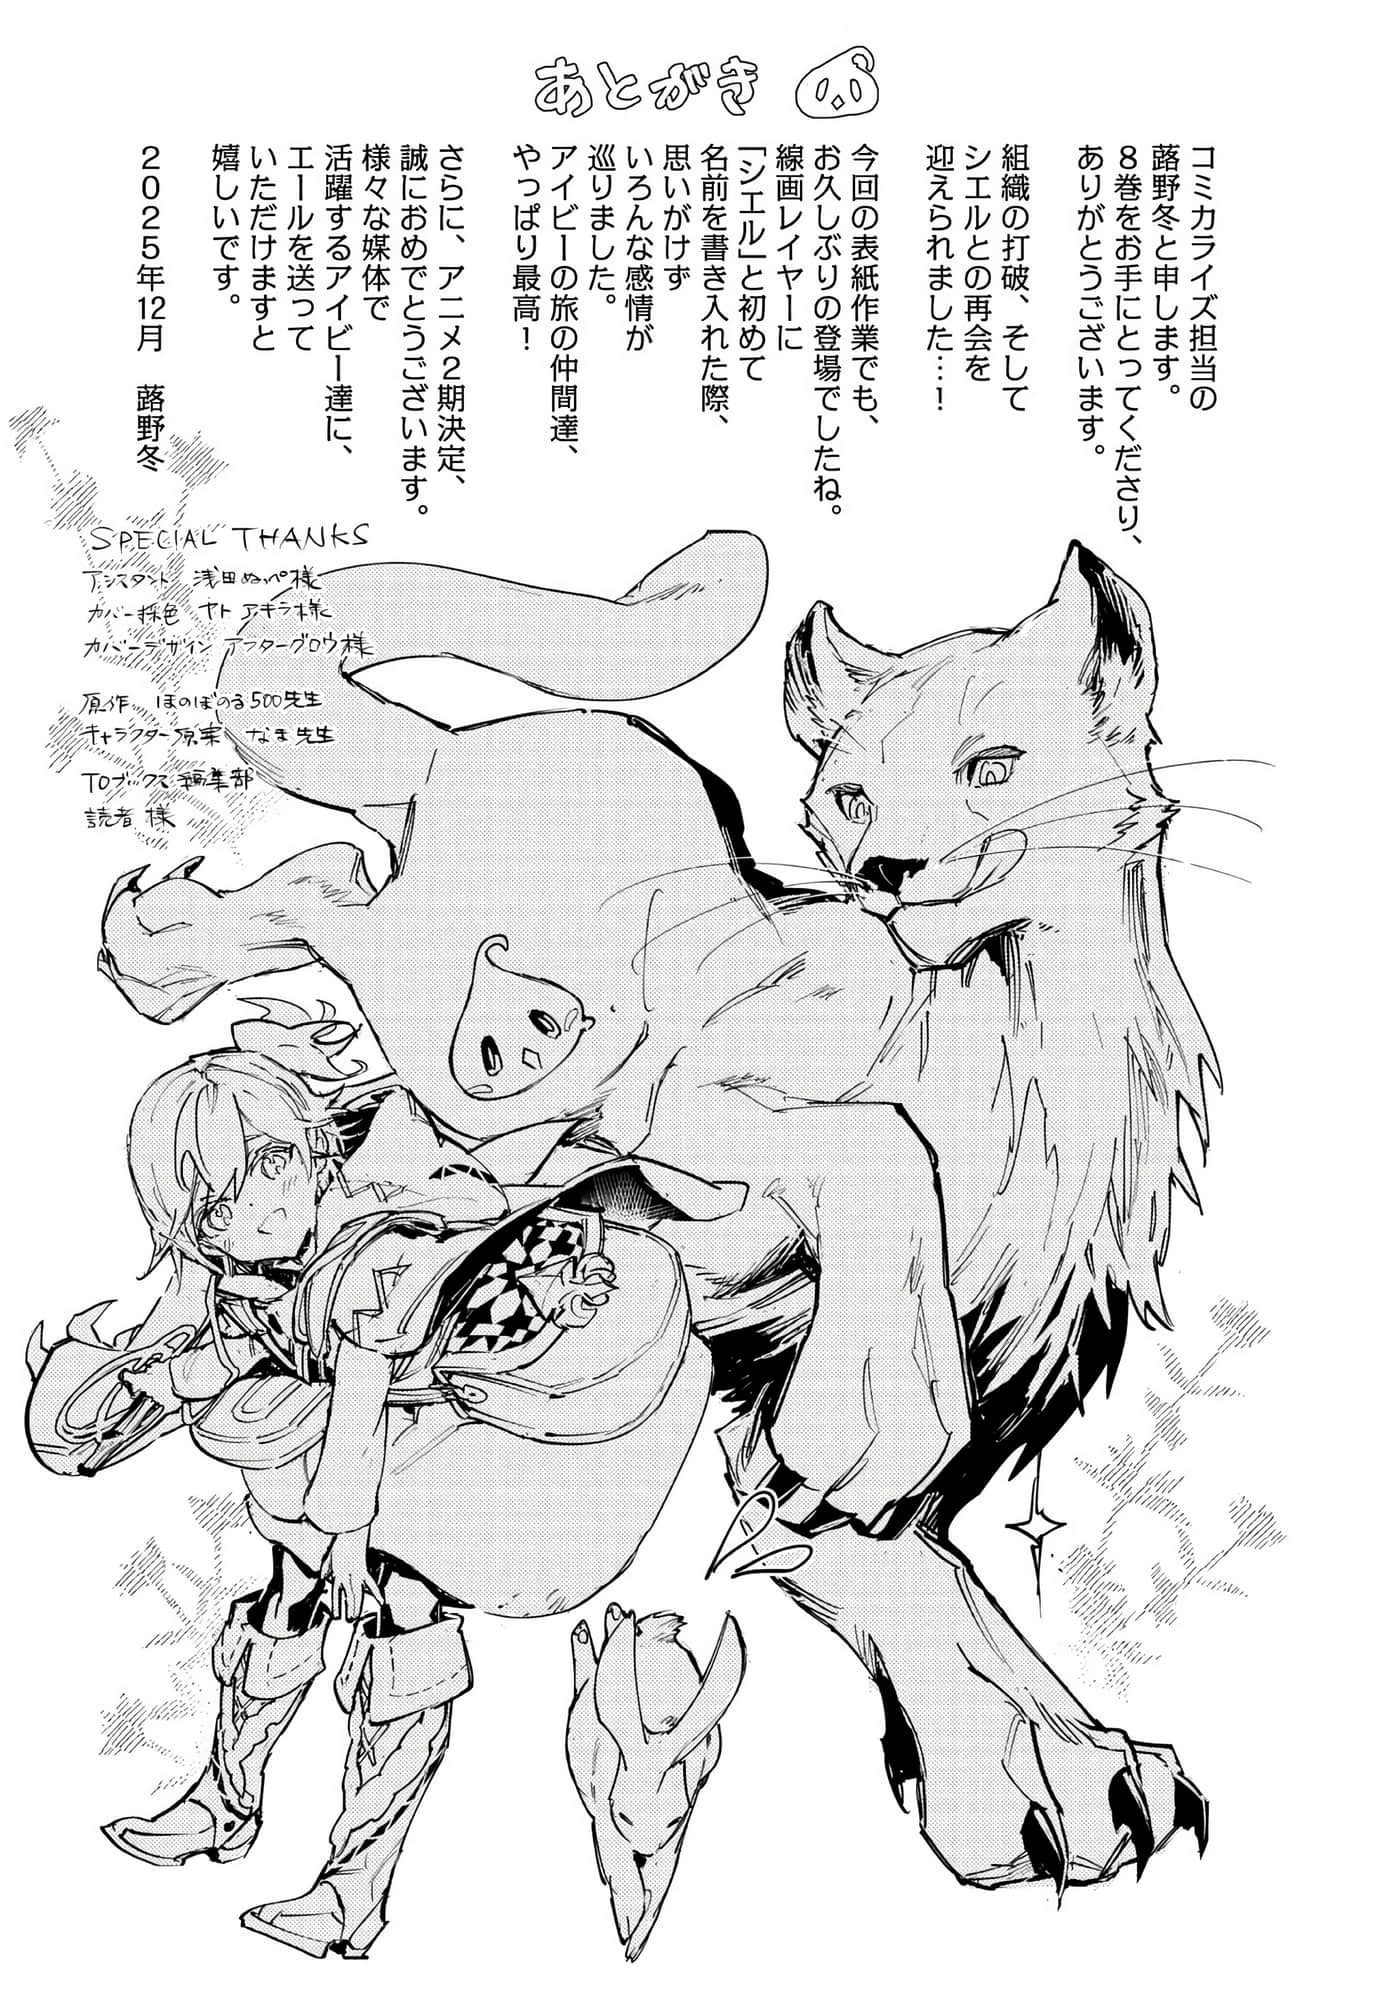 あとがき
コミカライズ担当の
蕗野冬と申します。
８巻をお手にとってくださり、
ありがとうございます。
組織の打破、そして
シエルとの再会を
迎えられました…！
今回の表紙作業でも、
お久しぶりの登場でしたね。
線画レイヤーに
「シエル」と初めて
名前を書き入れた際、
思いがけず
いろんな感情が
巡りました。
アイビーの旅の仲間達、
やっぱり最高！
さらに、アニメ２期決定、
誠におめでとうございます。
様々な媒体で
活躍するアイビー達に、
エールを送って
いただけますと
嬉しいです。
２０２５年12月　蕗野冬
SPECIAL THANKS
アシスタント 浅田ぬっぺ様
カバー採色 ヤト アキラ様
カバーデザイン アフターグロウ様
原作 ほのぼのる500先生
キャラクター原案 なま先生
TOブックス編集部
読者様